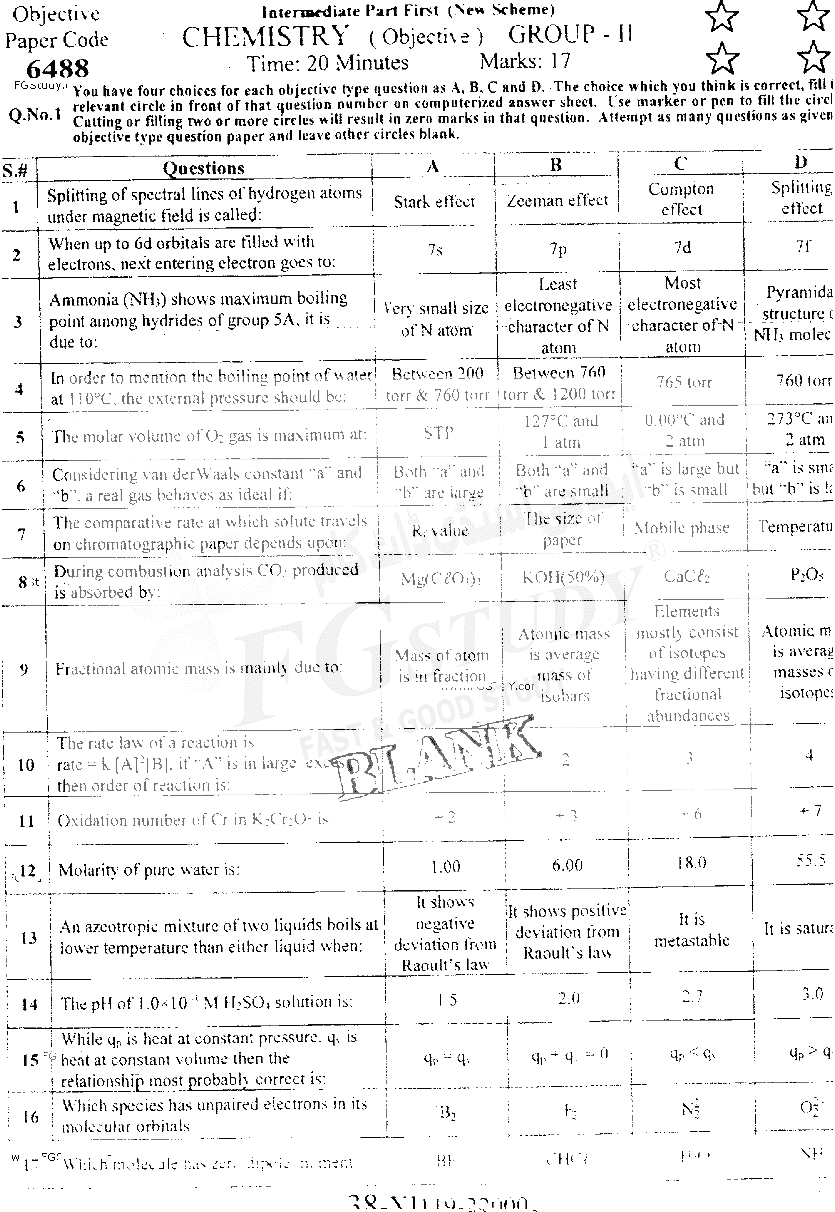 Objective
Paper Code
6488
Intermediate Part First (New Scheme)
CHEMISTRY (Objective) GROUP - II
Time: 20 Minutes Marks: 17
FGstudy
Q.No.1 You have four choices for each objective type question as A, B, C and D. The choice which you think is correct, fill
relevant circle in front of that question number on computerized answer sheet. Use marker or pen to fill the
Cutting or filling two or more circles will result in zero marks in that question. Attempt as many questions as given
objective type question paper and leave other circles blank.
S.# Questions A B C D
1 Splitting of spectral lines of hydrogen atoms under magnetic field is called: Stark effect Zeeman effect Compton effect Splitting effect
2 When up to 6d orbitals are filled with electrons, next entering electron goes to: 7s 7p 7d 7f
3 Ammonia (NH₃) shows maximum boiling point among hydrides of group 5A, it is due to: Very small size of N atom Least electronegative character of N atom Most electronegative character of N atom Pyramida structure NH₃ molec
4 In order to mention the boiling point of water at 110°C, the external pressure should be: Between 200 torr & 760 torr Between 760 torr & 1200 torr 765 torr 760 torr
5 The molar volume of O₂ gas is maximum at: STP 127°C and 1 atm 0.00°C and 2 atm 273°C an 2 atm
6 Considering van derWaals constant "a" and "b", a real gas behaves as ideal if: Both "a" and "b" are large Both "a" and "b" are small "a" is large but "b" is small "a" is sma but "b" is la
7 The comparative rate at which solute travels on chromatographic paper depends upon: Rf value The size of paper Mobile phase Temperatu
8 During combustion analysis CO₂ produced is absorbed by: Mg(CℓO₄)₂ KOH(50%) CaCℓ₂ P₂O₅
9 Fractional atomic mass is mainly due to: Mass of atom is in fraction Atomic mass is average mass of isobars Elements mostly consist of isotopes having different fractional abundances Atomic m is averag masses o isotopes
FGSTUDY
FAST & GOOD STUDY
BLANK
10 The rate law of a reaction is rate = k [A]²[B], if "A" is in large then order of reaction is: 2 3 4
11 Oxidation number of Cr in K₂Cr₂O₇ is + 2 + 3 + 6 + 7
12 Molarity of pure water is: 1.00 6.00 18.0 55.5
13 An azeotropic mixture of two liquids boils at lower temperature than either liquid when: It shows negative deviation from Raoult's law It shows positive deviation from Raoult's law It is metastable It is satura
14 The pH of M H₂SO₄ solution is: 1.5 2.0 2.7 3.0
15 While qₚ is heat at constant pressure, qᵥ is heat at constant volume then the relationship most probably correct is: qₚ = qᵥ qₚ + qᵥ = 0 qₚ < qᵥ qₚ > q
16 Which species has unpaired electrons in its molecular orbitals B₂ F₂
Which molecule has zero dipole moment